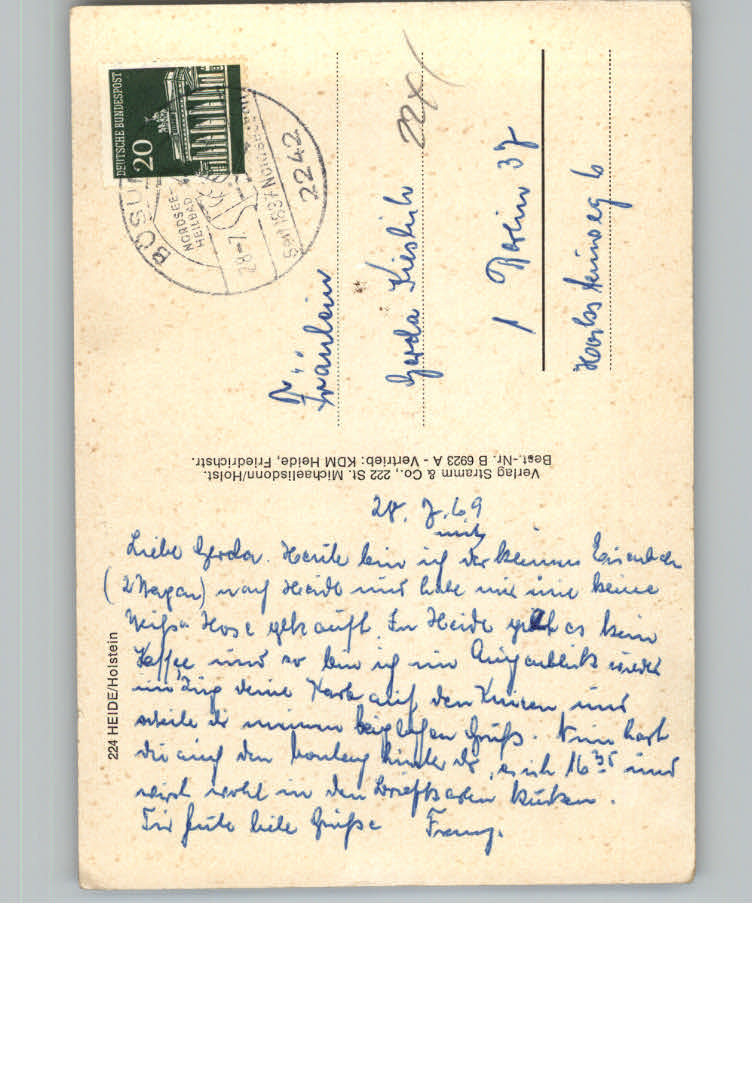 DEUTSCHE BUNDESPOST
20
BÜSUM
NORDSEE-
HEILBAD
28.-7.
Seit 1837 NORDSEEBAD
2242
22x/
Fräulein
Gerda
1 Berlin 37
6
Verlag Stramm & Co., 222 St. Michaelisdonn/Holst.
Best.-Nr. B 6923 A - Vertrieb: KDM Heide, Friedrichstr.
224 HEIDE/Holstein
28. 7. 69
mit
Liebe Gerda. Heute bin ich der kleinen Eisenbahn
(2 Wagen) nach Heide und habe mir eine
Hose gekauft. In Heide gibt es kein
Kaffee und so bin ich im Augenblick wieder
im Zug deine Karte auf den Knien und
dir meinen Gruß. Nun hast
du auch den hinter dir, es ist 16 35 und
wirst wohl in den Briefkasten kucken.
Für heute liebe Grüße Franz.